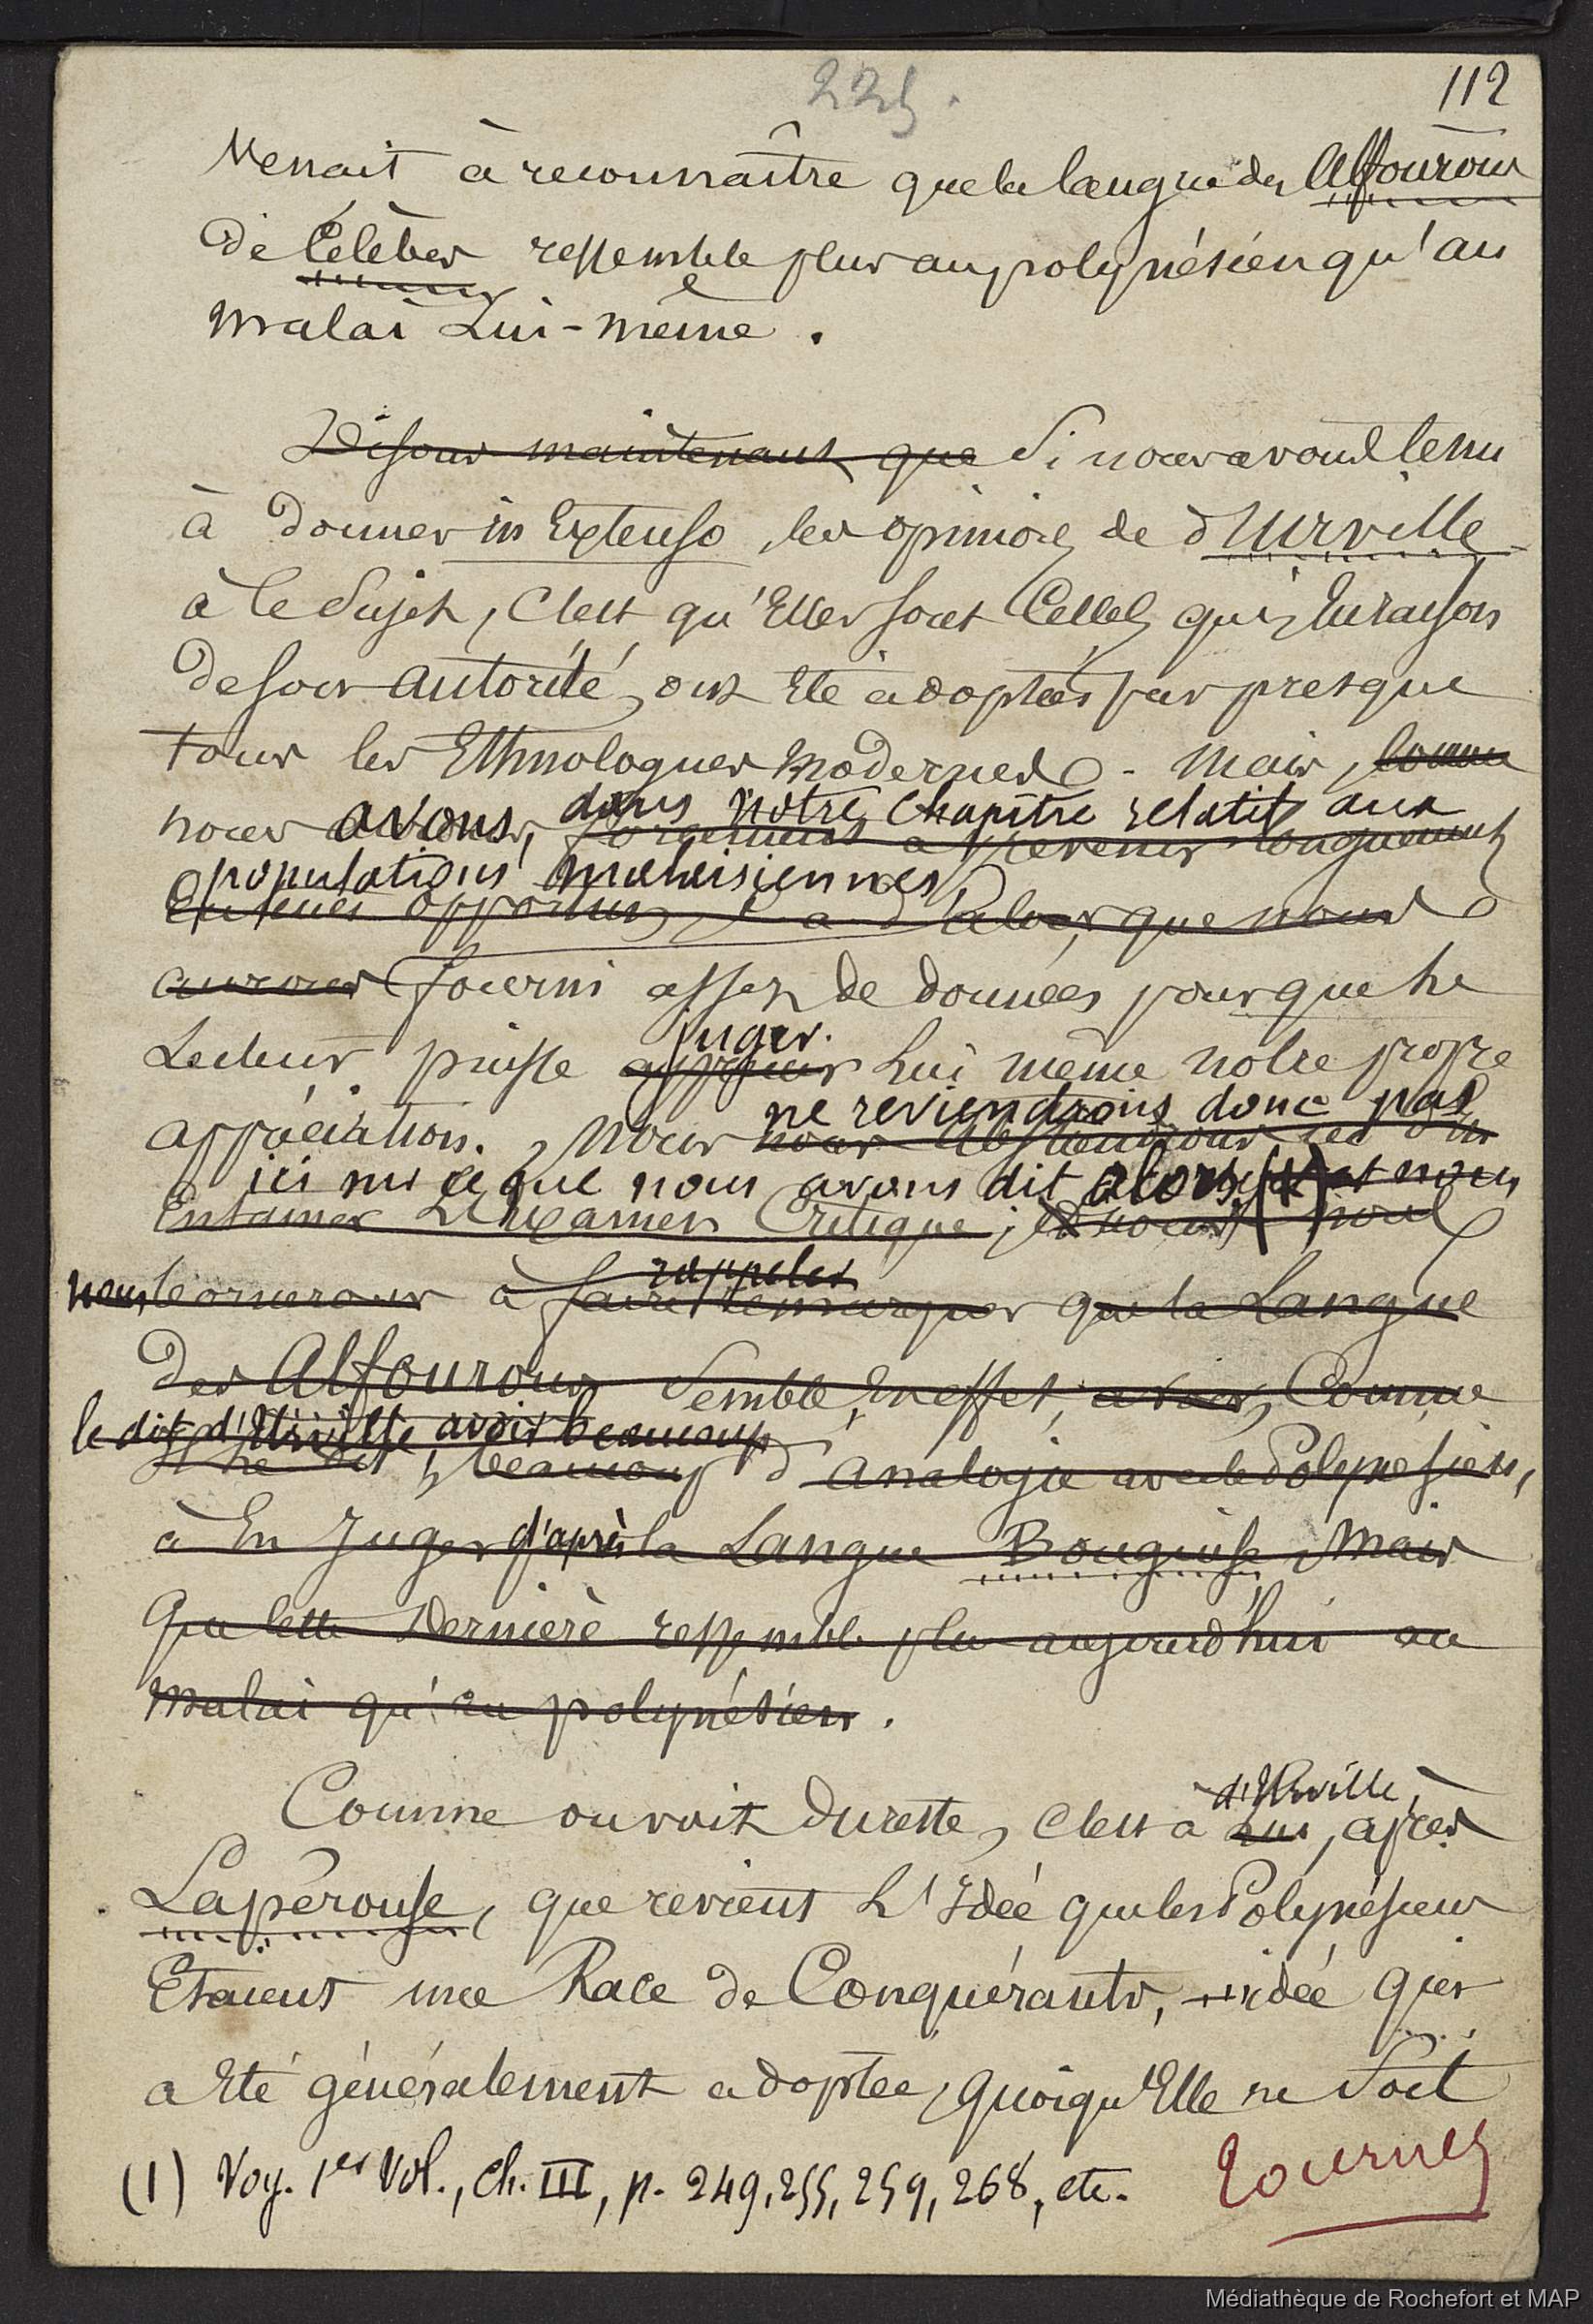 225.
112
venait à reconnaître que la langue des Alfourous
de Célèbes ressemble plus au polynésien qu'au
malai Lui-même.
Disons maintenant que Si nous avons tenu
à Donner in Extenso les opinions de d'Urville
à ce Sujet, C'est qu'Elles sont Celles qui, En raison
de son autorité, ont Eté adoptées par presque
tous les Ethnologues Modernes. Mais, comme
nous avons, dans notre Chapitre relatif aux
revenir longuement
populations malaisiennes,
En lieu opportun, que nous
aurons fourni assez de données pour que le
juger
Lecteur puisse apprécier Lui même notre propre
ne reviendrons donc pas
appréciation. Nous nous abstiendrons ici d'en
ici sur ce que nous avons dit alors (1) et nous
Entamer L'Examen Critique, et nous
nous bornerons à faire remarquer que la Langue
rappeler
des Alfourous Semble, En effet, avoir, Comme
le dit d'Urville, avoir beaucoup
Il le dit, beaucoup d'analogie avec le Polynésien,
à En Juger d'après la Langue Bouguise, Mais
Que cette Dernière ressemble plus aujourd'hui au
Malai qu'au polynésien.
d'Urville,
Comme on voit du reste, C'est à Lui, après
Lapérouse, que revient L'Idée que les Polynésiens
Etaient une Race de Conquérants, idée qui
a Eté généralement adoptée, quoiqu'Elle ne Soit
(1) Voy. 1er Vol., Ch. III, p. 249, 255, 259, 268, etc.
Tournez
Médiathèque de Rochefort et MAP